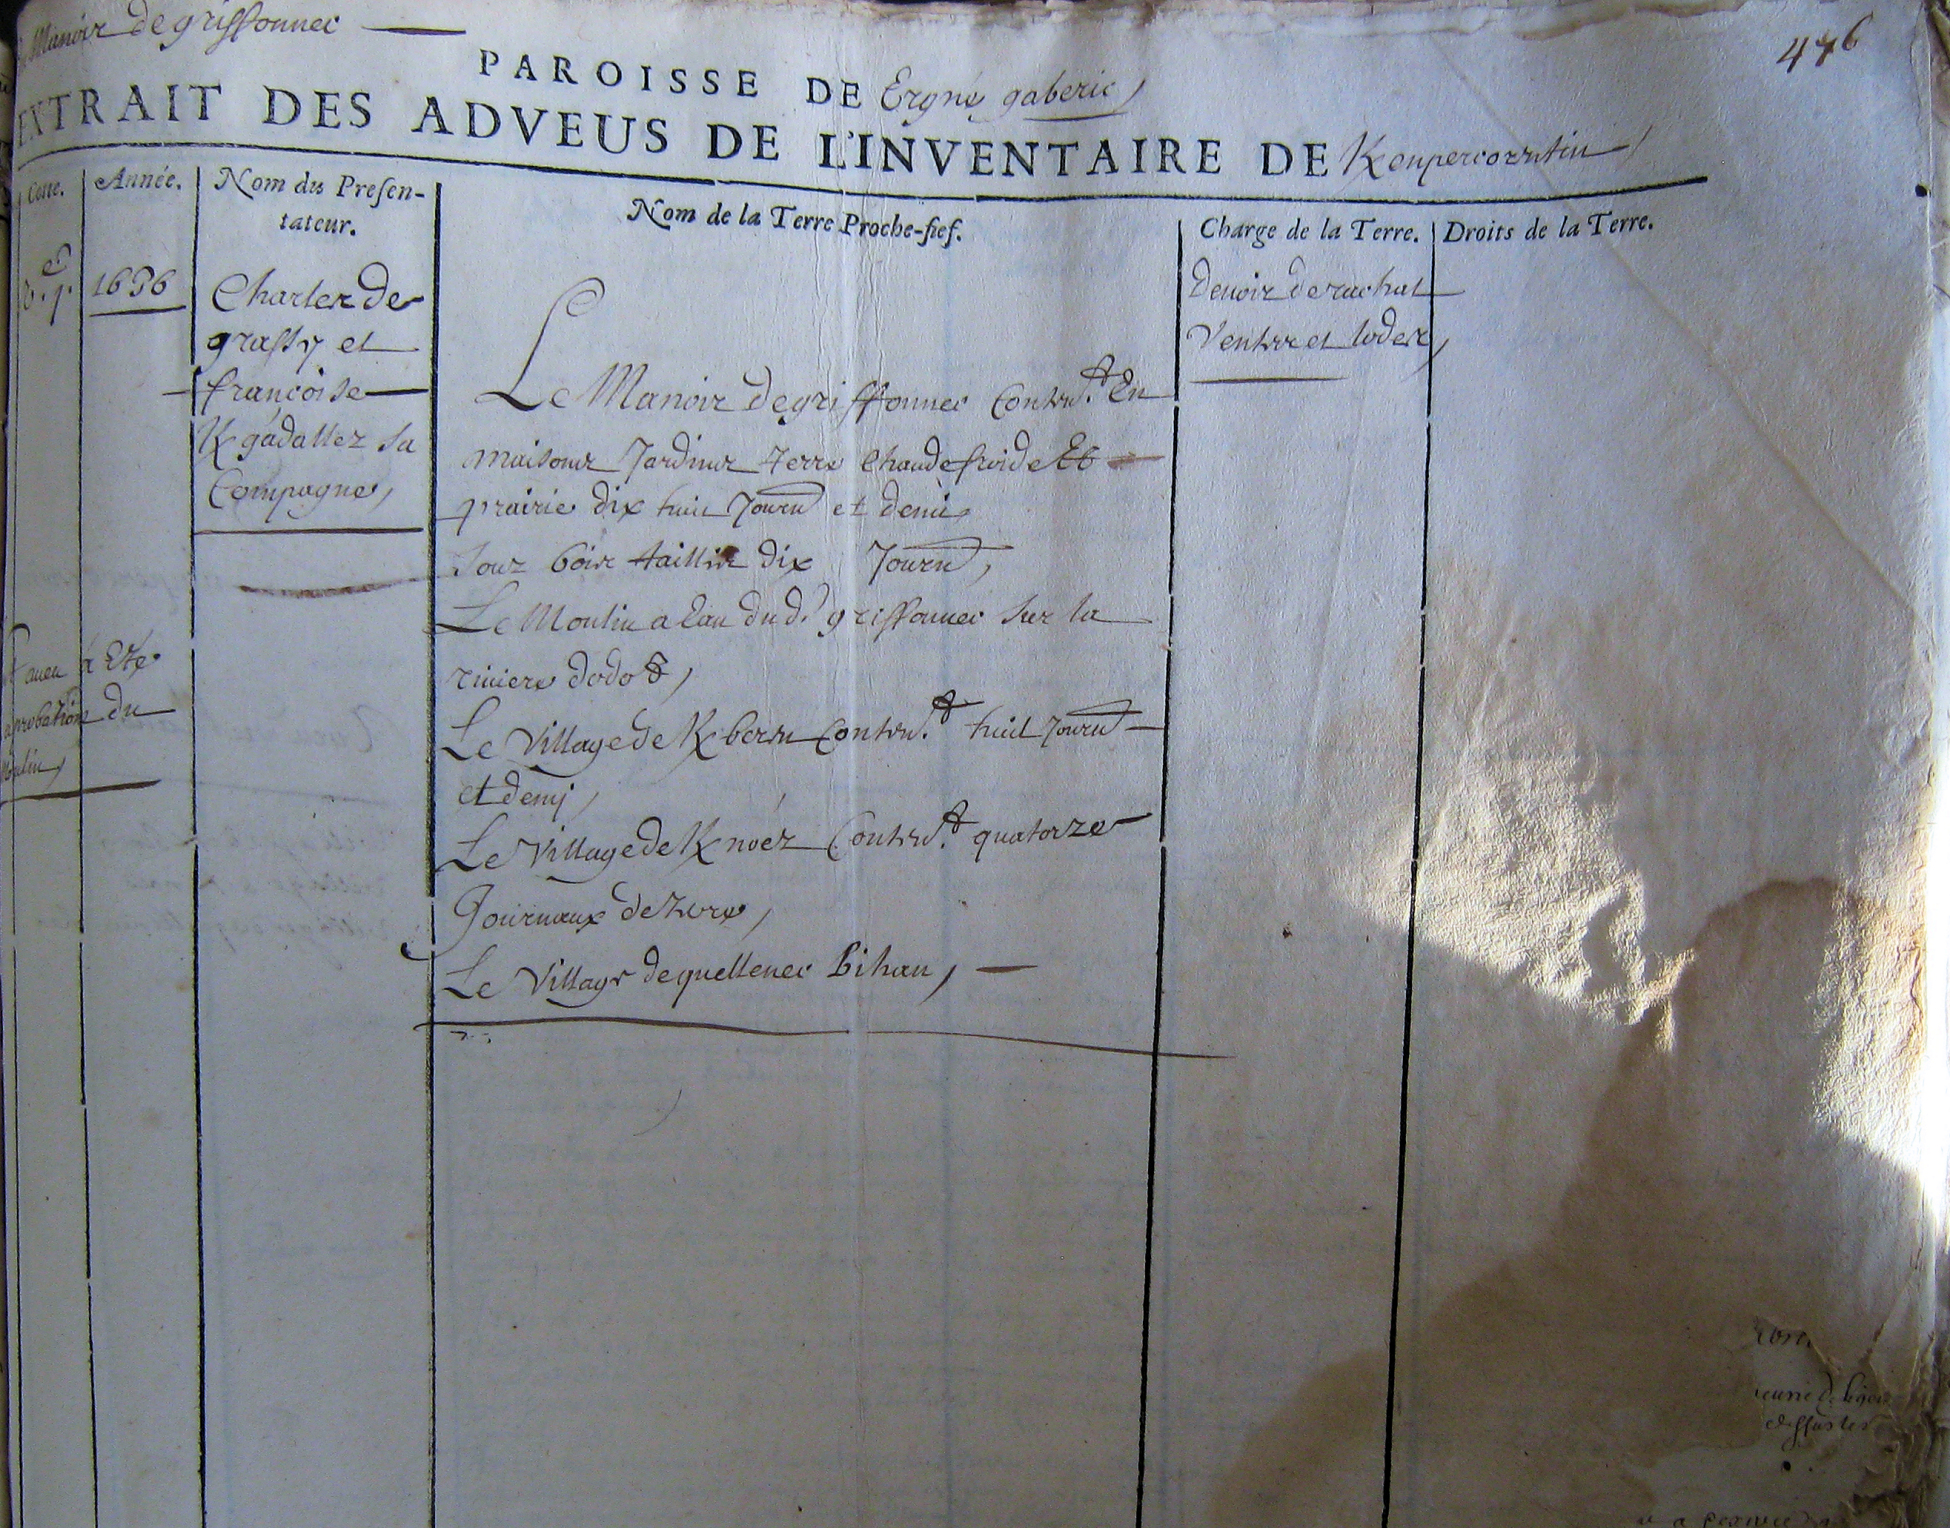 Manoir de griffonnec
476
PAROISSE DE Ergné gaberic
EXTRAIT DES ADVEUS DE L'INVENTAIRE DE Kenpercorentin
Cotte. Année. Nom du Presen-
tateur.
Nom de la Terre Proche-fief.
Charge de la Terre. Droits de la Terre.
1636
Charles de
grassy et
francoise
K gadallez sa
Compagne,
Le Manoir de griffonnec Conten.t En
maisons Jardins Terre Chaude froide Et
prairie dix huit Journ et demie
Souz bois taillis dix Journ,
Le Moulin a Eau dud. griffonnec sur la
riviere dodet,
Le Village de K bern Conten.t huit Journ
et demj,
Le Village de K noez Conten.t quatorze
Journaux de terre,
Le Village de quellenec Bihan,
devoir de rachat
Ventes et lodes,
aueu à Eté
aprobation du
Moulin,